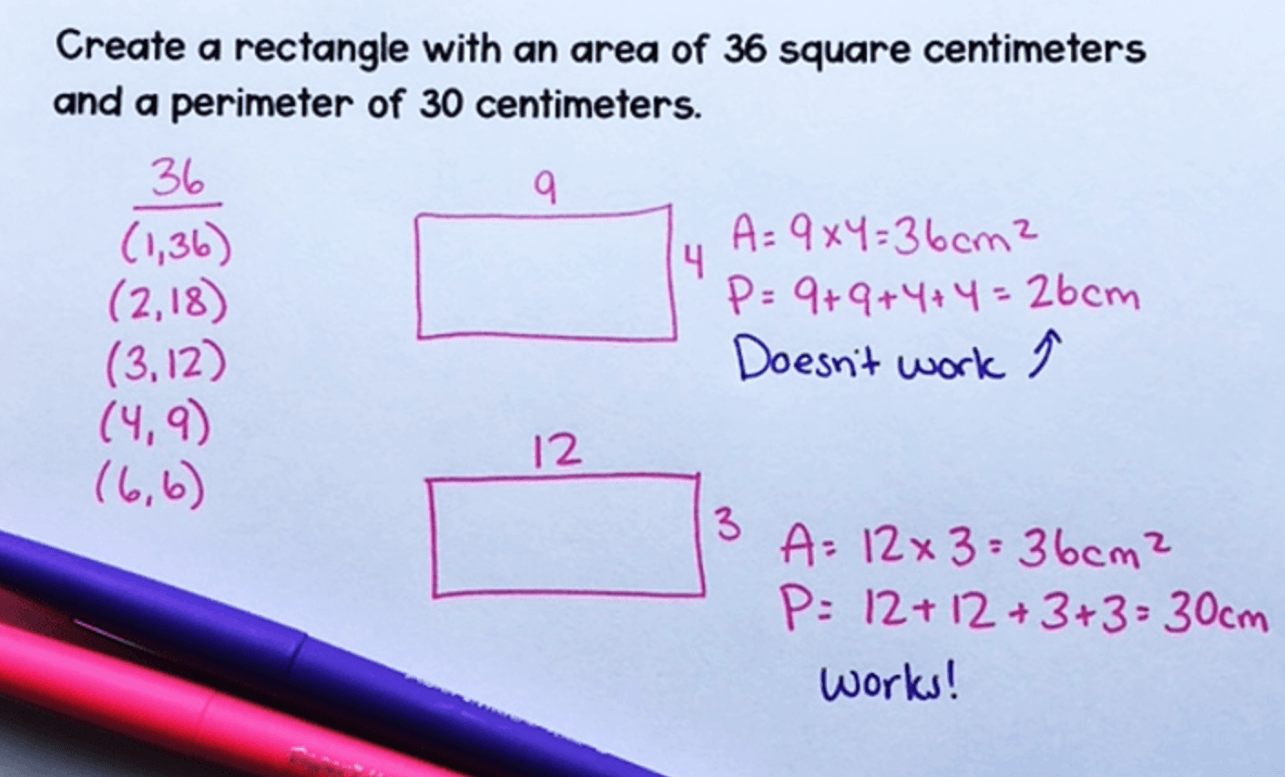 Create a rectangle with an area of 36 square centimeters
and a perimeter of 30 centimeters.
36
(1,36)
(2,18)
(3,12)
(4,9)
(6,6)
9
4
A= 9x4=36cm²
P= 9+9+4+4= 26cm
Doesn't work ↑
12
3
A= 12x3=36cm²
P= 12+12+3+3=30cm
Works!